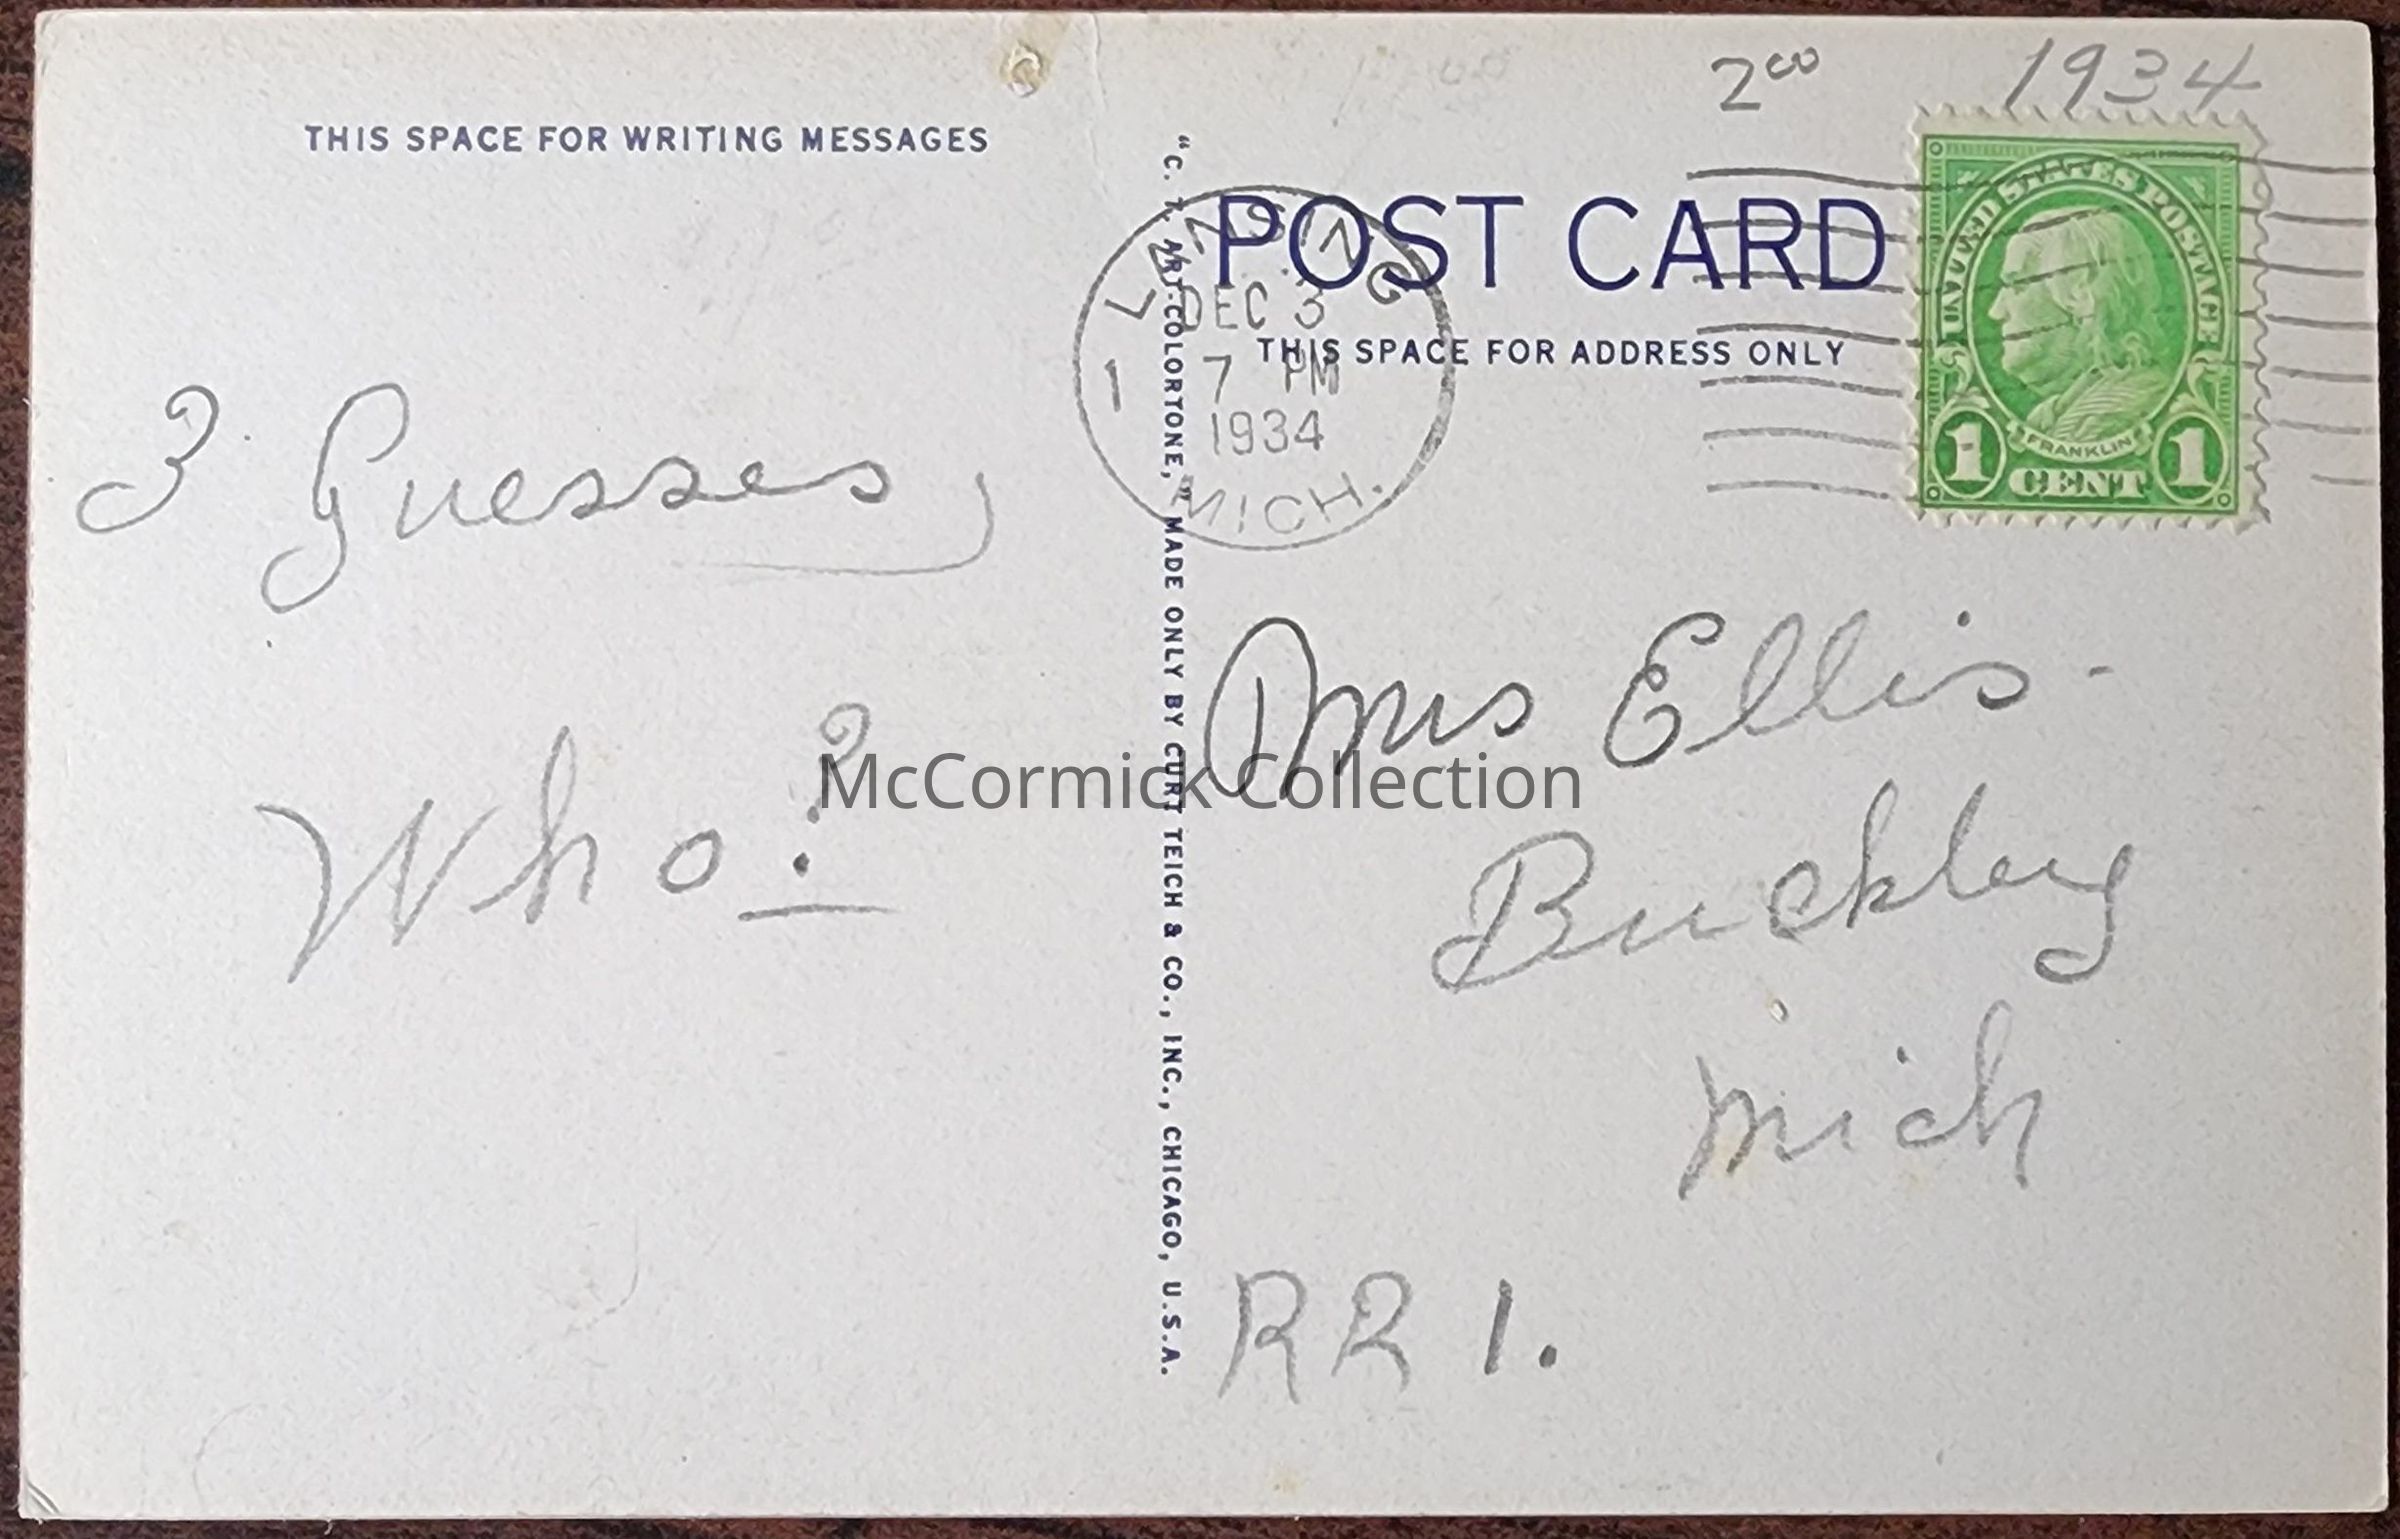 2⁰⁰ 1934
THIS SPACE FOR WRITING MESSAGES
3 Guesses,
Who?
"C. T. ART-COLORTONE," MADE ONLY BY CURT TEICH & CO., INC., CHICAGO, U.S.A.
POST CARD
THIS SPACE FOR ADDRESS ONLY
LANSING
DEC 3
1 7 PM
1934
MICH.
UNITED STATES POSTAGE
FRANKLIN
1 CENT 1
Mrs Ellis-
Buckley
Mich
RR 1.
McCormick Collection